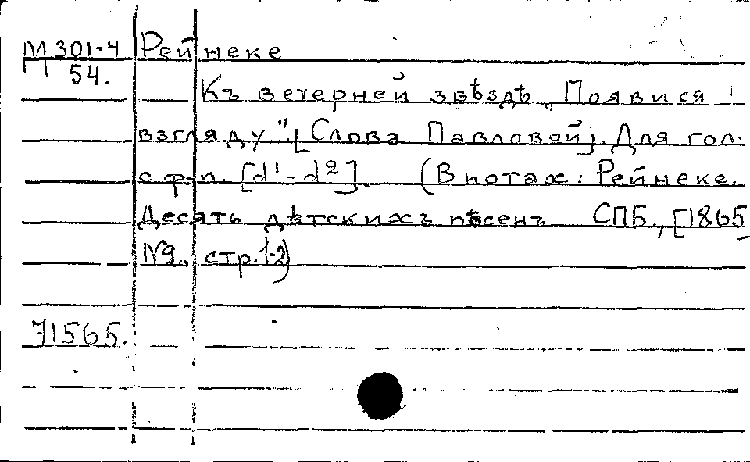 М 301-4 Рейнеке
54.
Къ вечерней звѣздѣ „Появися
взгляду". [Слова Павловой]. Для гол.
с ф-п. [d¹-d²]. (В нотах: Рейнеке.
Десять дѣтскихъ пѣсенъ СПБ., [1865]
№9. стр. 1-2)
71565.